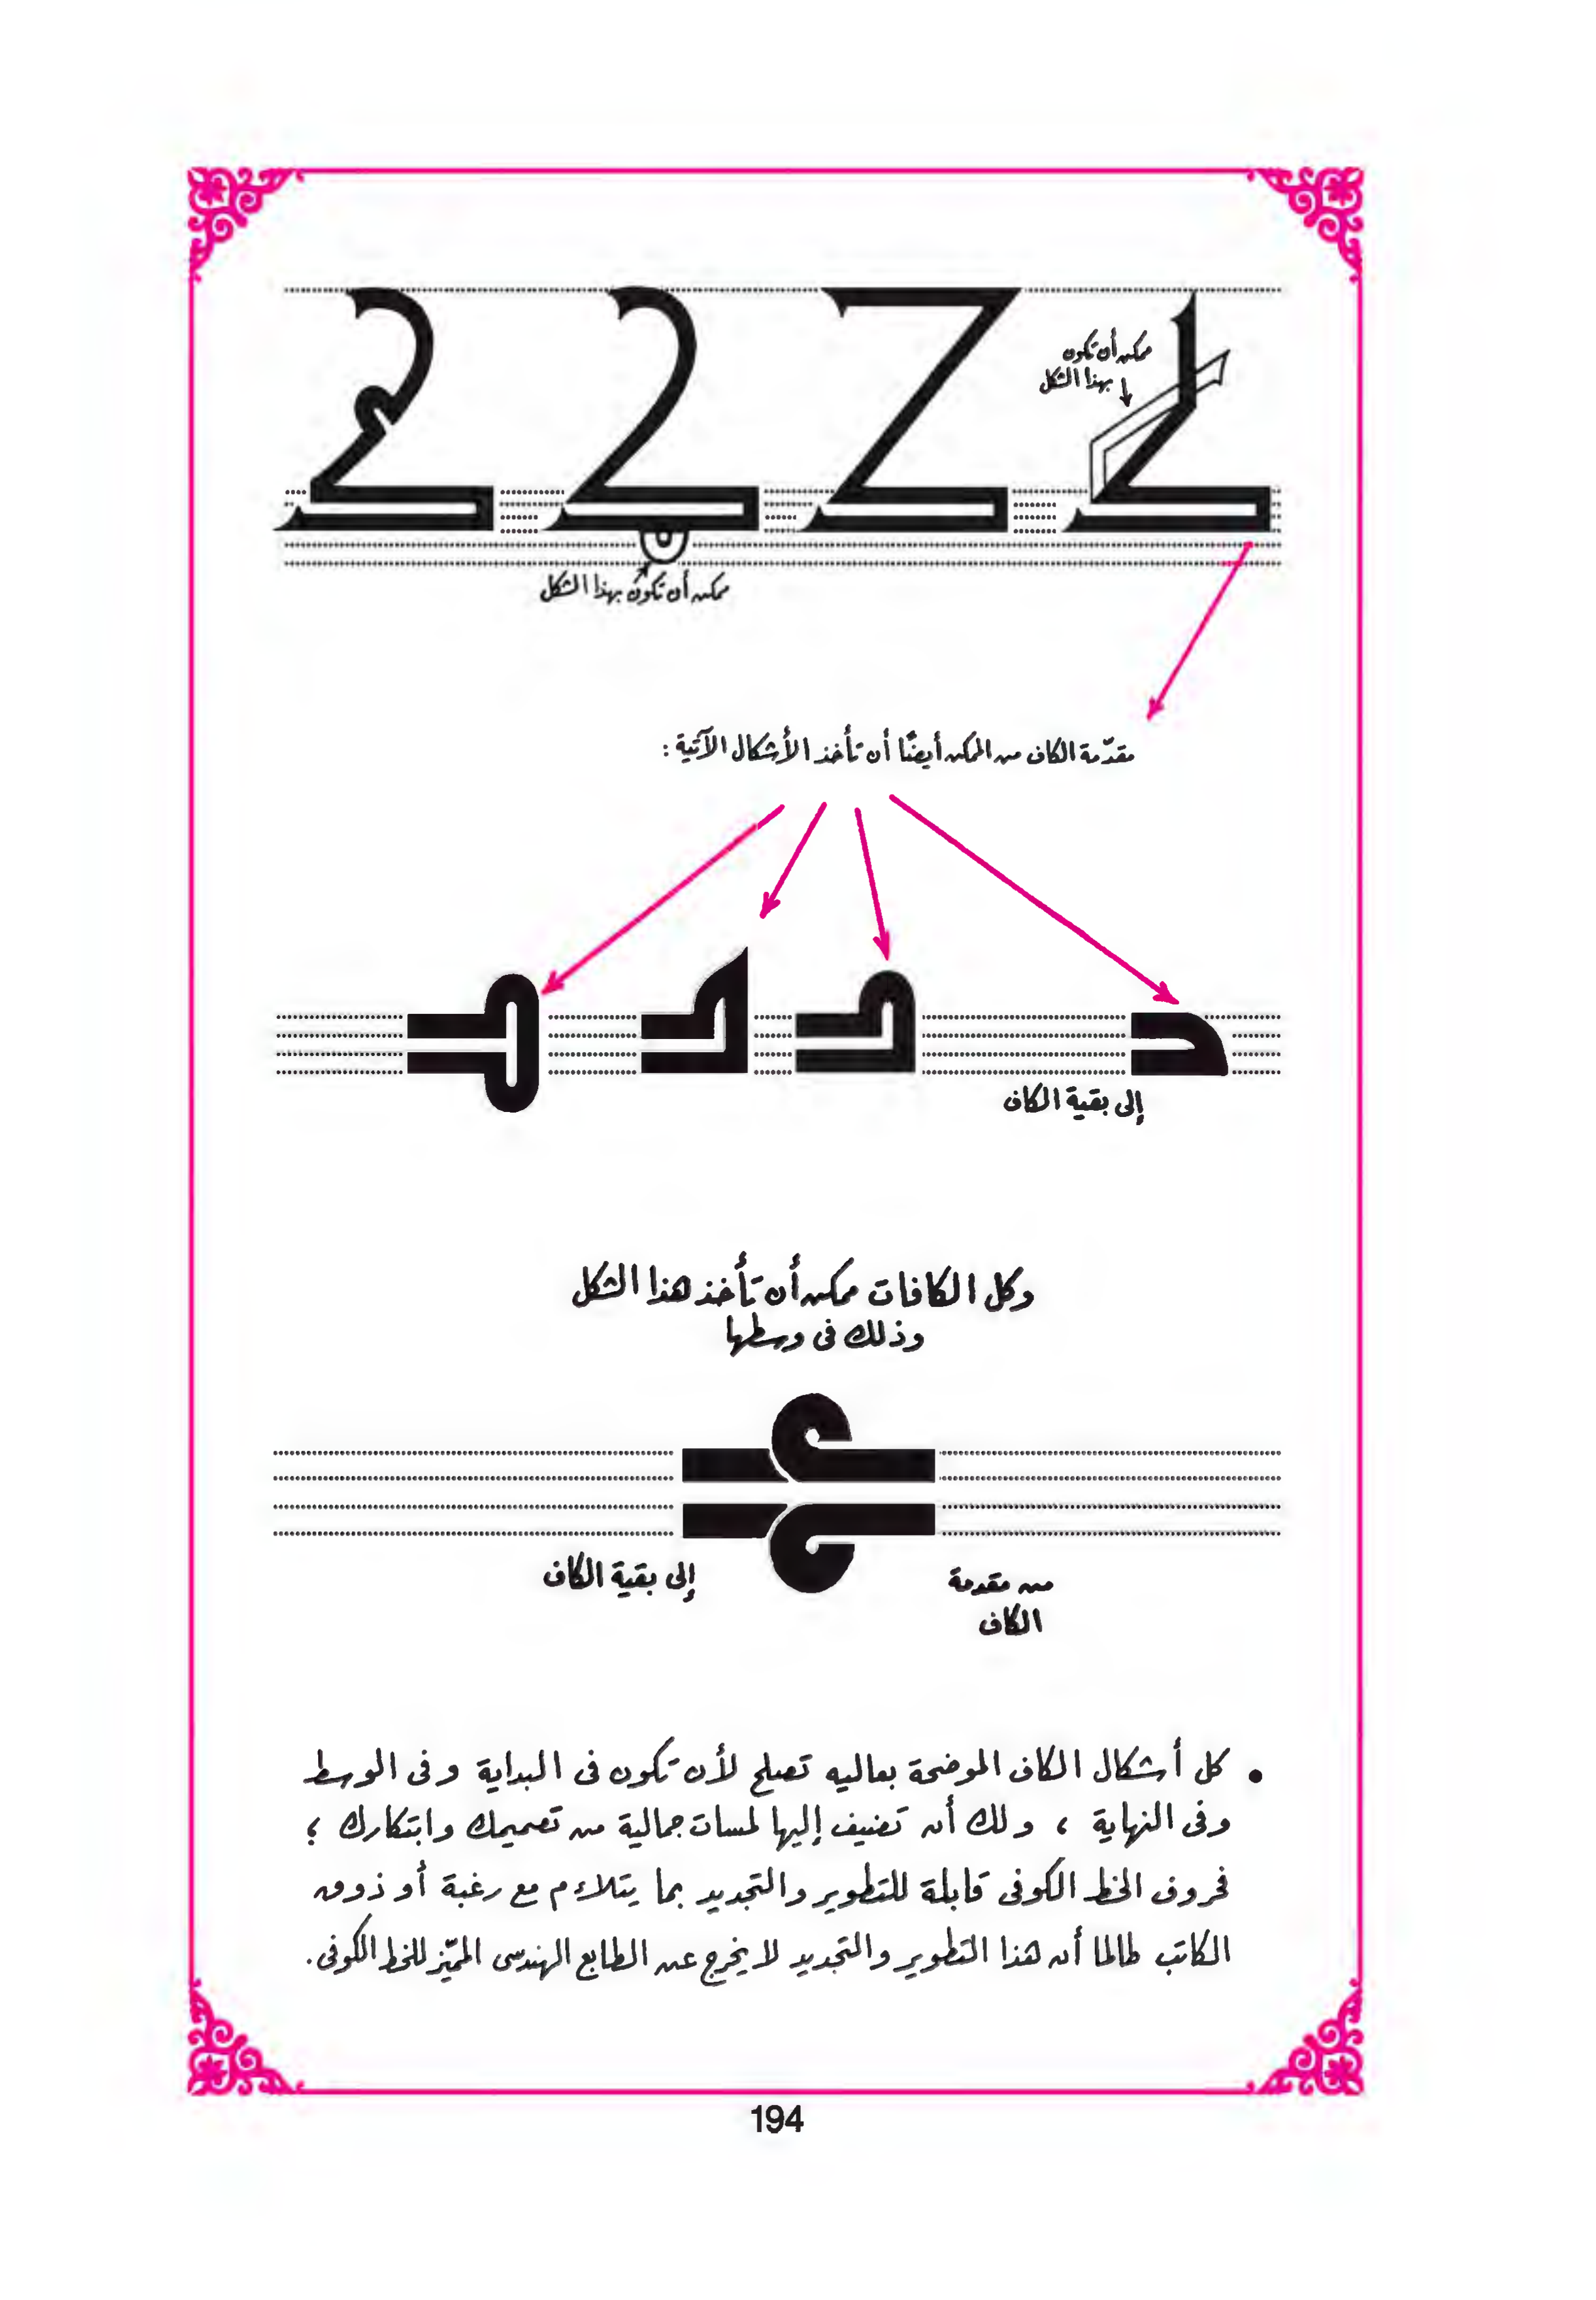 ممكن أن تكون
بهذا الشكل
ممكن أن تكون بهذا الشكل
مقدّمة الكاف من الممكن أيضًا أن تأخذ الأشكال الآتية :
إلى بقية الكاف
وكل الكافات ممكن أن تأخذ هذا الشكل
وذلك فى وسطها
من مقدمة
الكاف
إلى بقية الكاف
• كل أشكال الكاف الموضحة بعاليه تصلح لأن تكون فى البداية وفى الوسط
وفى النهاية ، ولك أن تضيف إليها لمسات جمالية من تصميمك وابتكارك ؛
فحروف الخط الكوفى قابلة للتطوير والتجديد بما يتلاءم مع رغبة أو ذوق
الكاتب طالما أن هذا التطوير والتجديد لا يخرج عن الطابع الهندسى المميّز للخط الكوفى .
194